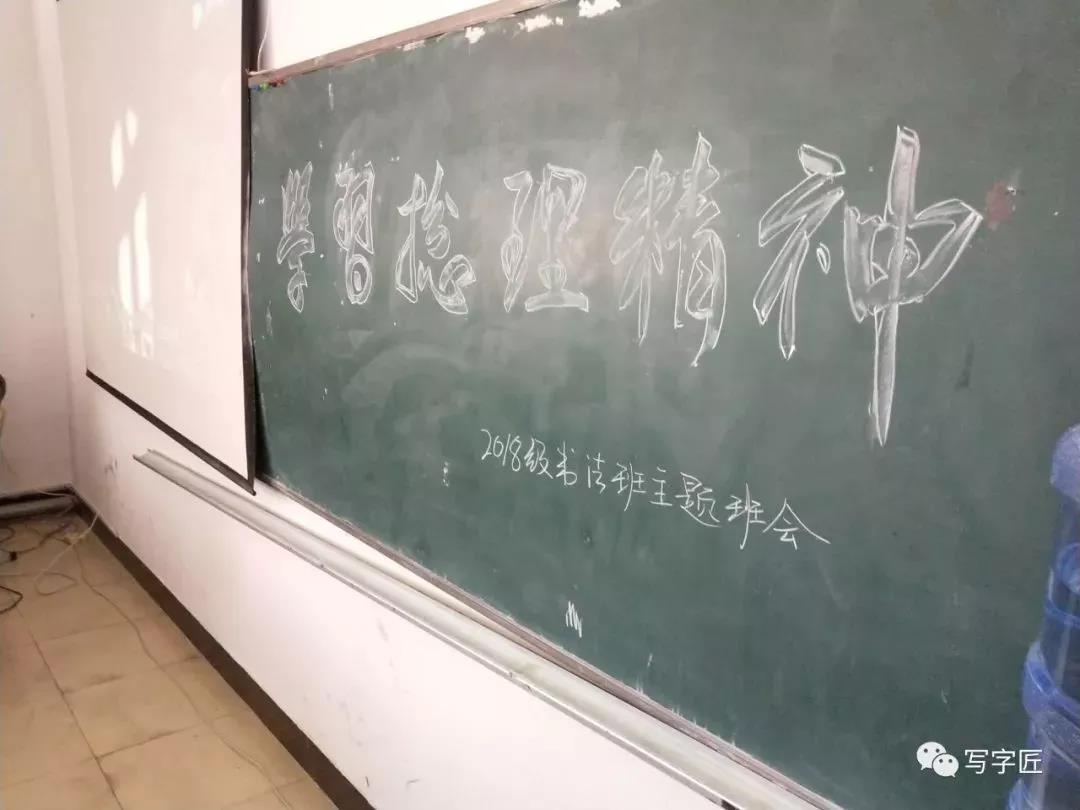 學習捴理精神
2018级书法班主题班会
写字匠